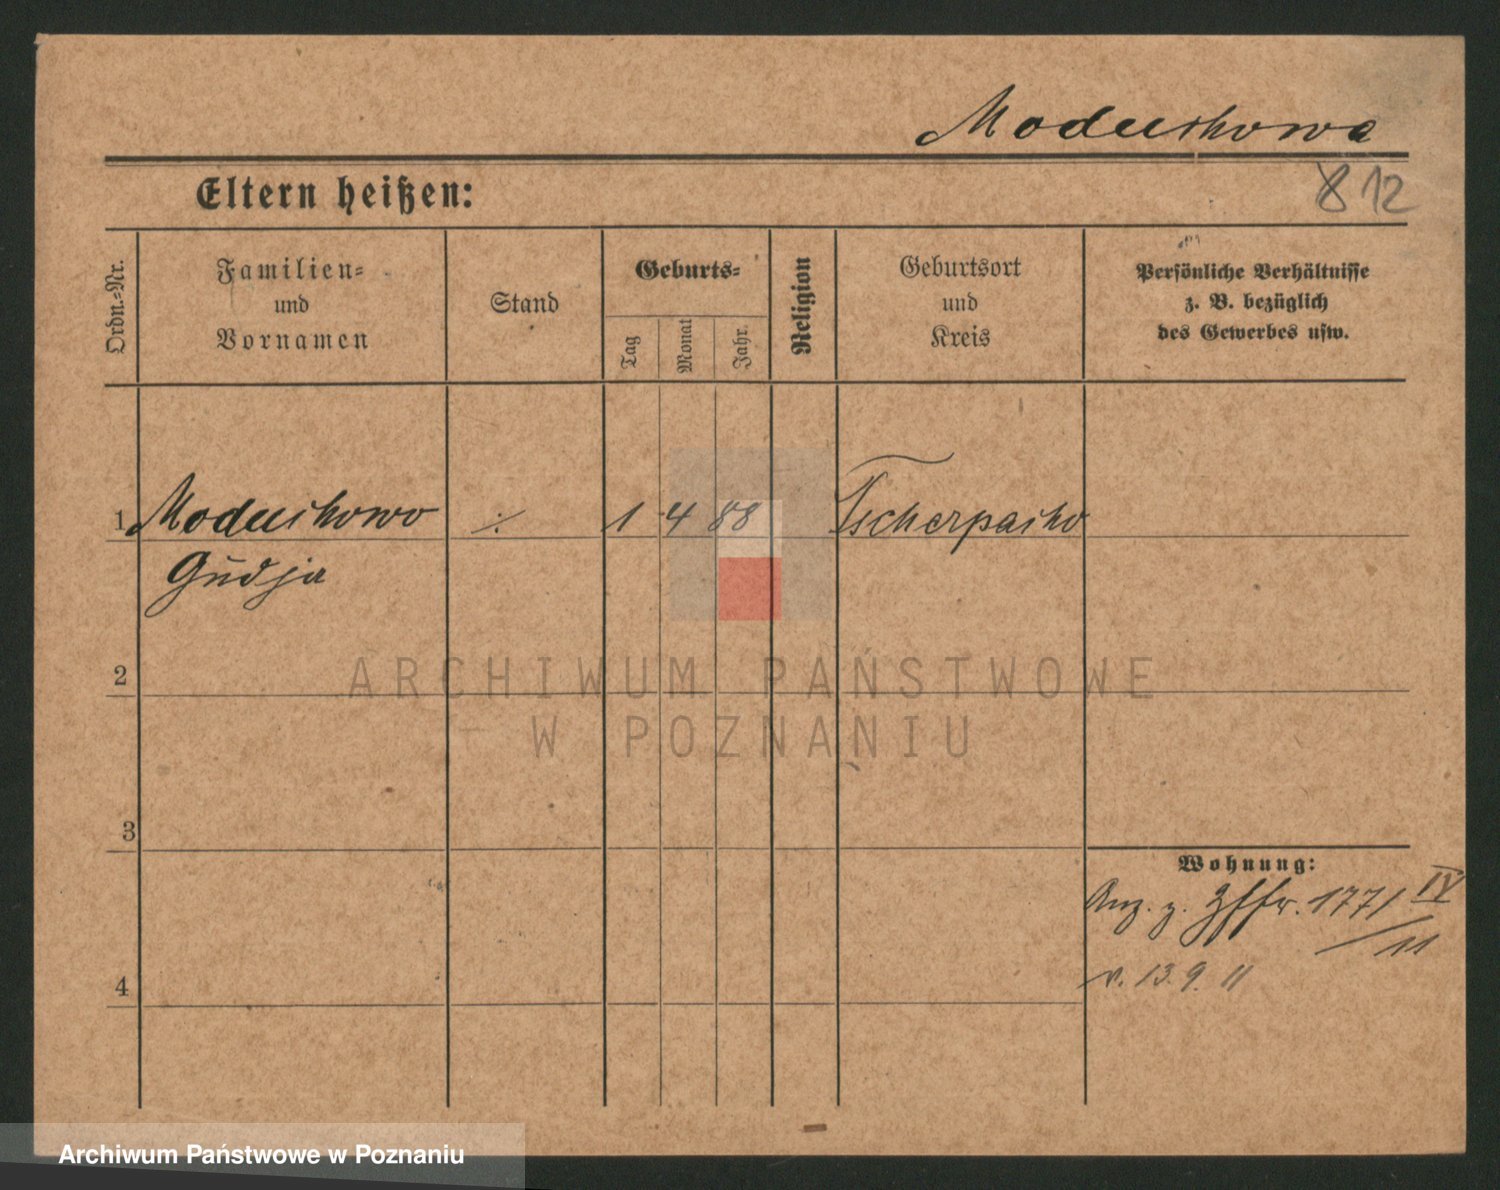 Moduskowa
8 12
Eltern heißen:
Ordn.-Nr.
Familien-
und
Vornamen
Stand
Geburts-
Tag
Monat
Jahr.
Religion
Geburtsort
und
Kreis
Persönliche Verhältnisse
z. B. bezüglich
des Gewerbes usw.
1 Moduskowo ·/· 1 4 88 Tscherpasko
Gudja
2
3
4
Wohnung:
Anz. z. 1771 IV
/11
v. 13. 9. 11
ARCHIWUM PAŃSTWOWE
W POZNANIU
Archiwum Państwowe w Poznaniu